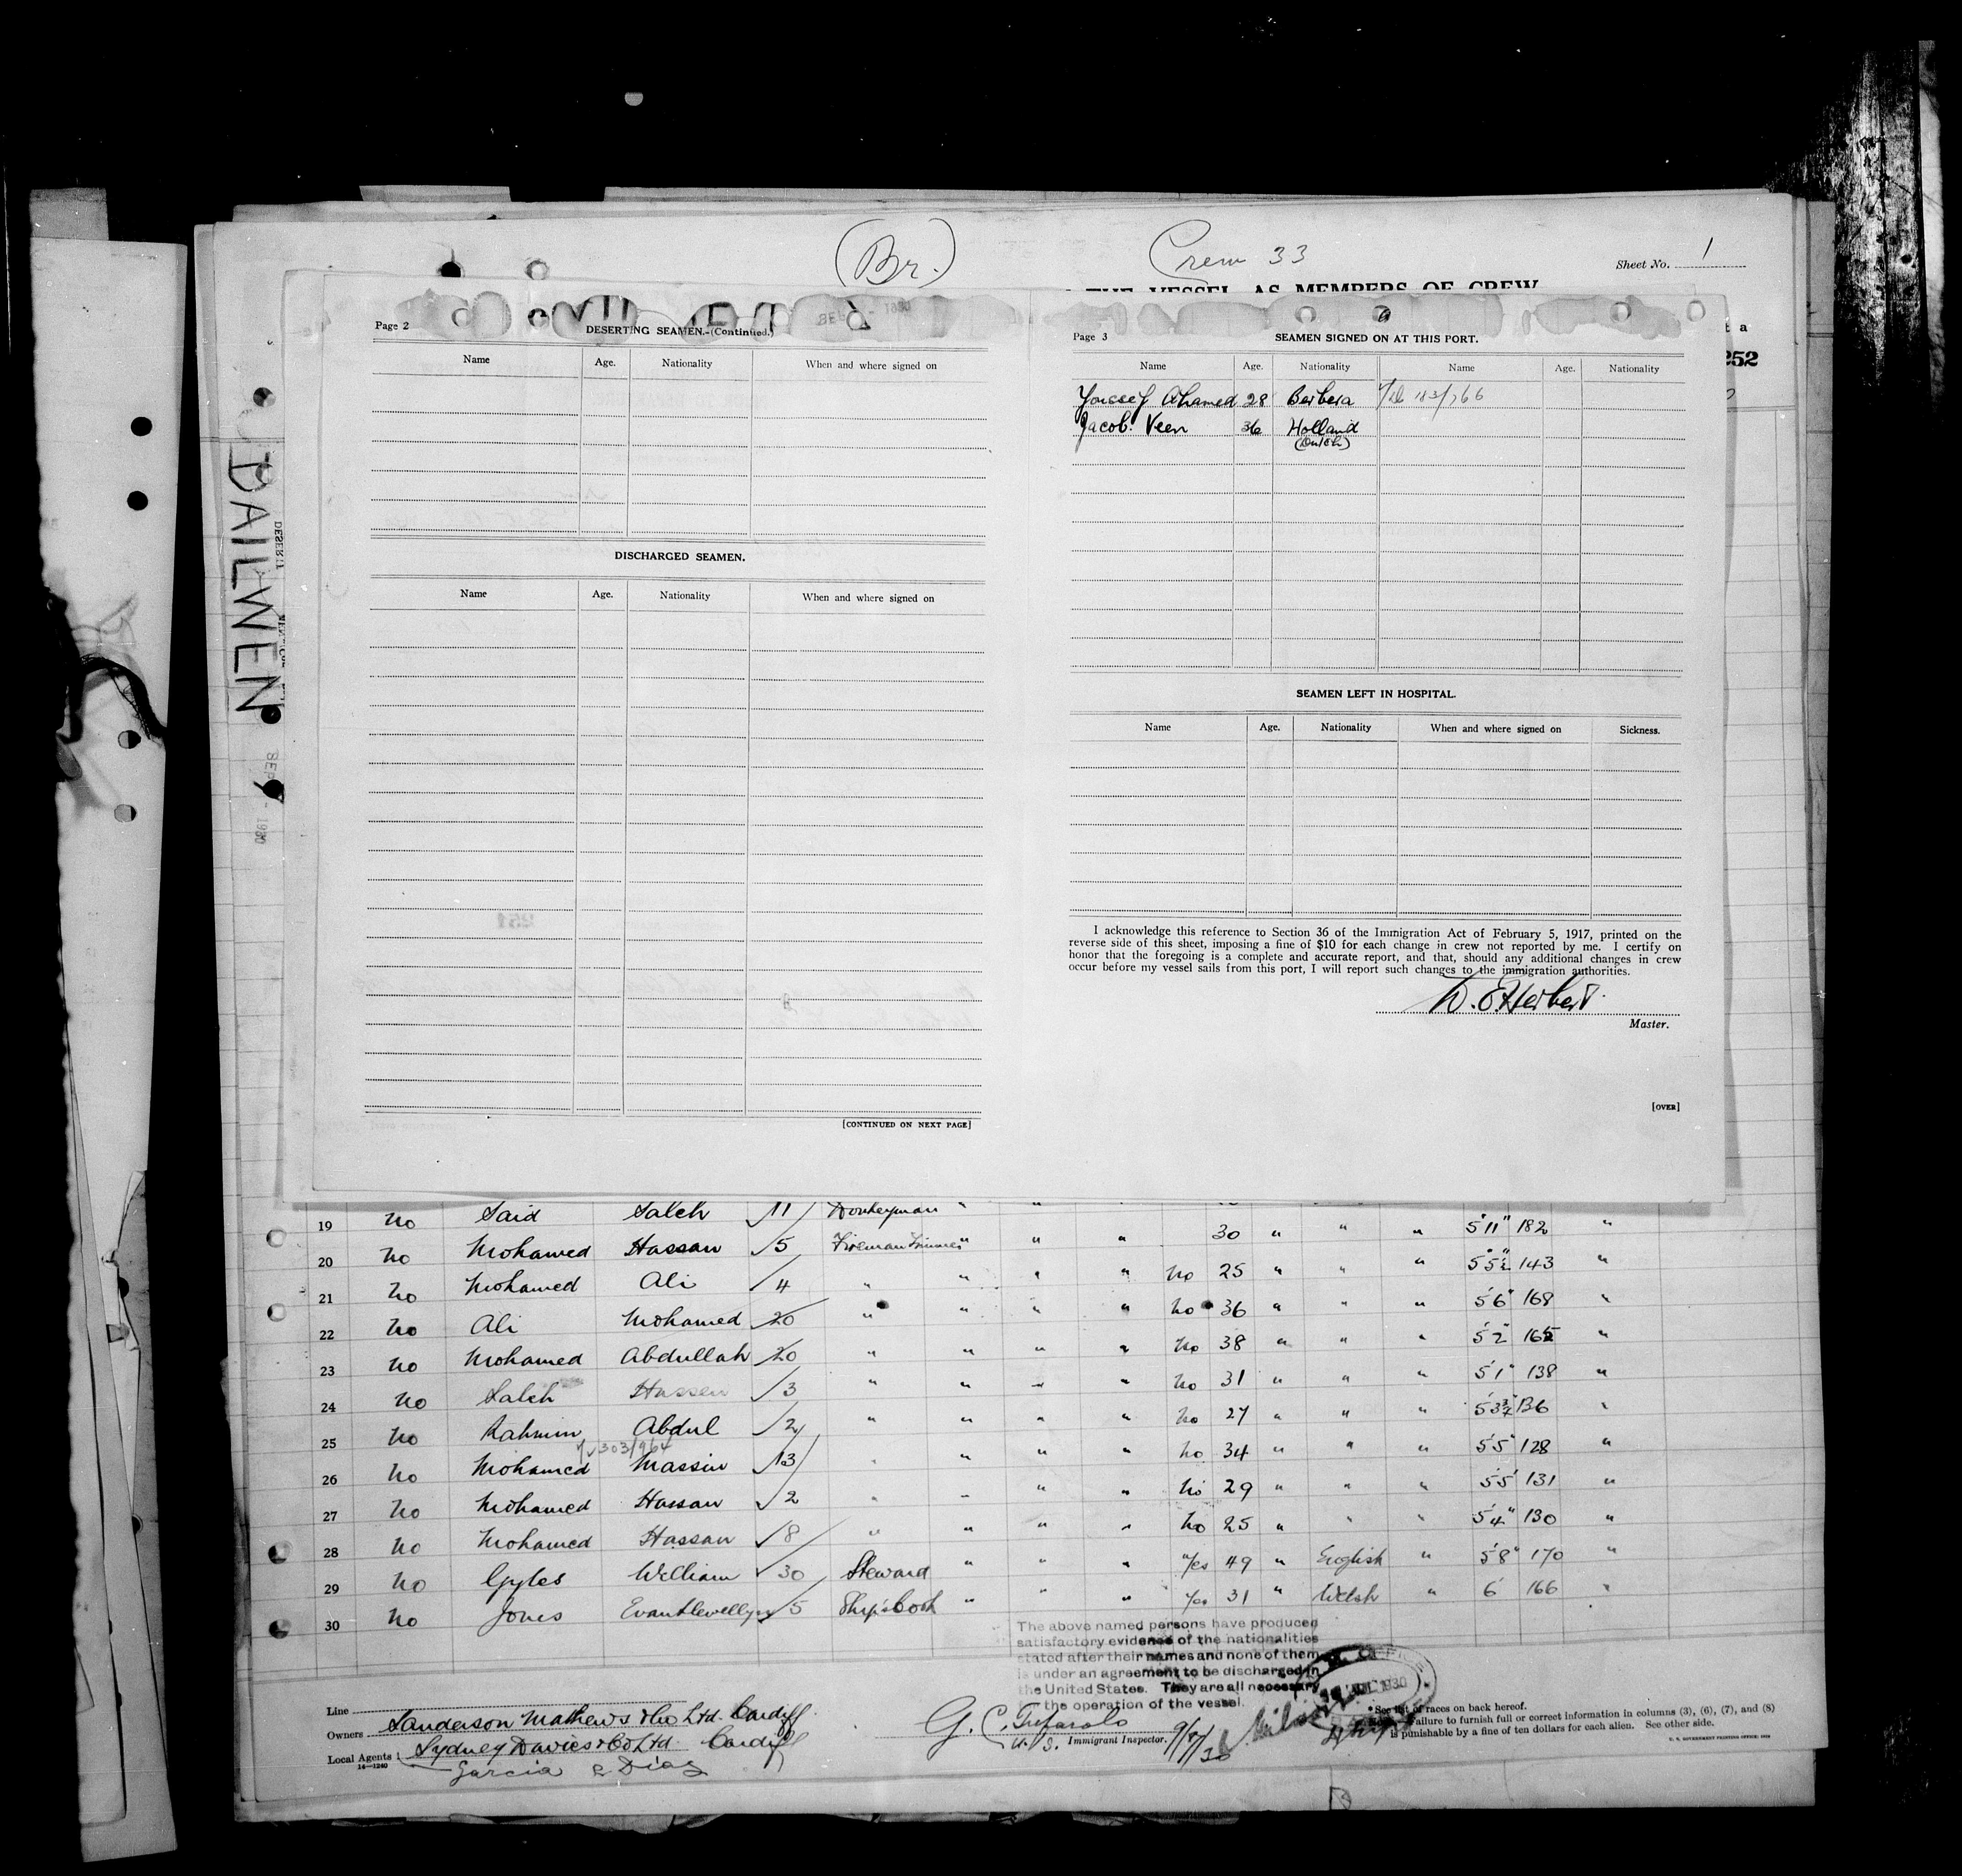 (Br.)
Crew 33
Sheet No. 1
THE VESSEL AS MEMBERS OF CREW
252
DAILWEN
SEP 1930
Page 2
DESERTING SEAMEN.-(Continued.)
Name Age. Nationality When and where signed on
DISCHARGED SEAMEN.
Name Age. Nationality When and where signed on
[CONTINUED ON NEXT PAGE]
Page 3
SEAMEN SIGNED ON AT THIS PORT.
Name Age. Nationality Name Age. Nationality
Youssef Ahamed 28 Berbera
Jacob. Veen 36 Holland
(Dutch)
SEAMEN LEFT IN HOSPITAL.
Name Age. Nationality When and where signed on Sickness.
I acknowledge this reference to Section 36 of the Immigration Act of February 5, 1917, printed on the
reverse side of this sheet, imposing a fine of $10 for each change in crew not reported by me. I certify on
honor that the foregoing is a complete and accurate report, and that, should any additional changes in crew
occur before my vessel sails from this port, I will report such changes to the immigration authorities.
W. E. Herbert.
Master.
[OVER]
19 no Said Saleh 11 Donkeyman " " 30 " " " 5'11" 182 "
20 no Mohamed Hassan 5 Fireman Trimmer " " " no 25 " " " 5'5½" 143 "
21 no Mohamed Ali 4 " " " " no 36 " " " 5'6" 168 "
22 no Ali Mohamed 20 " " " " no 38 " " " 5'2" 165 "
23 no Mohamed Abdullah 20 " " " " no 31 " " " 5'1" 138 "
24 no Saleh Hassen 3 " " " " no 27 " " " 5'3¾" 136 "
25 no Rahmin Abdul 2 " " " " no 34 " " " 5'5" 128 "
303/964
26 no Mohamed Massin 13 " " " " no 29 " " " 5'5" 131 "
27 no Mohamed Hassan 2 " " " " no 25 " " " 5'4" 130 "
28 no Mohamed Hassan 8 " " " " Yes 49 " English " 5'8" 170 "
29 no Gyles William 30 Steward " " " Yes 31 " Welsh " 6' 166 "
30 no Jones Evan Llewellyn 5 Ship's Cook "
The above named persons have produced
satisfactory evidence of the nationalities
stated after their names and none of them
is under an agreement to be discharged in
the United States. They are all necessary
the operation of the vessel.
Line
Owners Sanderson Mathews & Co Ltd. Cardiff.
Local Agents Sydney Davies & Co Ltd. Cardiff
Garcia & Diaz
14—1240
U. S. Immigrant Inspector.
*See list of races on back hereof.
Failure to furnish full or correct information in columns (3), (6), (7), and (8)
is punishable by a fine of ten dollars for each alien. See other side.
U. S. GOVERNMENT PRINTING OFFICE